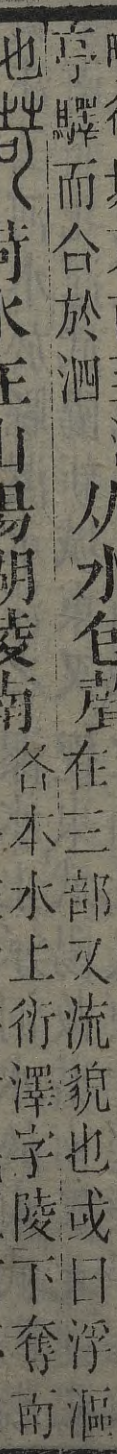 亭驛而合於泗
从水包聲
在三部又流貌也或曰浮漚
也
菏水在山陽湖陵南
各本水上衍澤字陵下奪南